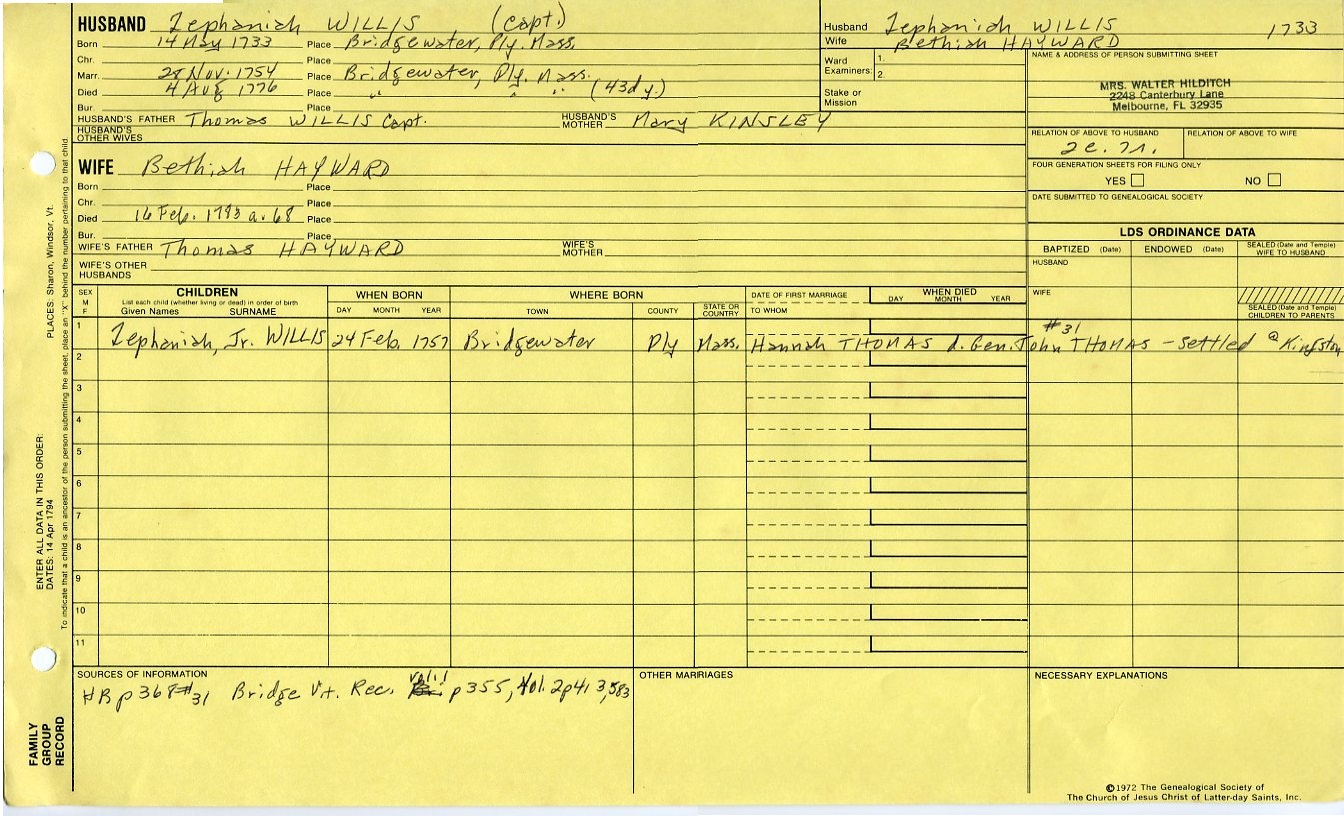 HUSBAND Zephaniah WILLIS (Capt.)
Born 14 May 1733 Place Bridgewater, Ply. Mass.
Chr. Place
Marr. 28 Nov. 1754 Place Bridgewater, Ply. Mass.
Died 4 Aug 1776 Place " " " (43d y.)
Bur. Place
HUSBAND'S FATHER Thomas WILLIS Capt. HUSBAND'S MOTHER Mary KINSLEY
HUSBAND'S OTHER WIVES
WIFE Bethiah HAYWARD
Born Place
Chr. Place
Died 16 Feb. 1793 a. 68 Place
Bur. Place
WIFE'S FATHER Thomas HAYWARD WIFE'S MOTHER
WIFE'S OTHER HUSBANDS
Husband Zephaniah WILLIS 1733
Wife Bethiah HAYWARD
Ward Examiners: 1.
2.
Stake or Mission
NAME & ADDRESS OF PERSON SUBMITTING SHEET
MRS. WALTER HILDITCH
2248 Canterbury Lane
Melbourne, FL 32935
RELATION OF ABOVE TO HUSBAND RELATION OF ABOVE TO WIFE
FOUR GENERATION SHEETS FOR FILING ONLY
YES NO
DATE SUBMITTED TO GENEALOGICAL SOCIETY
LDS ORDINANCE DATA
BAPTIZED (Date) ENDOWED (Date) SEALED (Date and Temple) WIFE TO HUSBAND
HUSBAND
WIFE
SEALED (Date and Temple) CHILDREN TO PARENTS
SEX M F
CHILDREN
List each child (whether living or dead) in order of birth
Given Names SURNAME
WHEN BORN
DAY MONTH YEAR
WHERE BORN
TOWN COUNTY STATE OR COUNTRY
DATE OF FIRST MARRIAGE
TO WHOM
WHEN DIED
DAY MONTH YEAR
1 Zephaniah, Jr. WILLIS 24 Feb. 1757 Bridgewater Ply Mass. Hannah THOMAS d. Gen. John THOMAS - settled @ Kingston
#31
2
3
4
5
6
7
8
9
10
11
SOURCES OF INFORMATION
HB p368 #31 Bridge Vit. Rec. vol. 1 p355, Vol. 2 p413, 583
OTHER MARRIAGES
NECESSARY EXPLANATIONS
©1972 The Genealogical Society of
The Church of Jesus Christ of Latter-day Saints, Inc.
FAMILY GROUP RECORD
ENTER ALL DATA IN THIS ORDER:
DATES: 14 Apr 1794 PLACES: Sharon, Windsor, Vt.
To indicate that a child is an ancestor of the person submitting the sheet, place an "X" behind the number pertaining to that child.